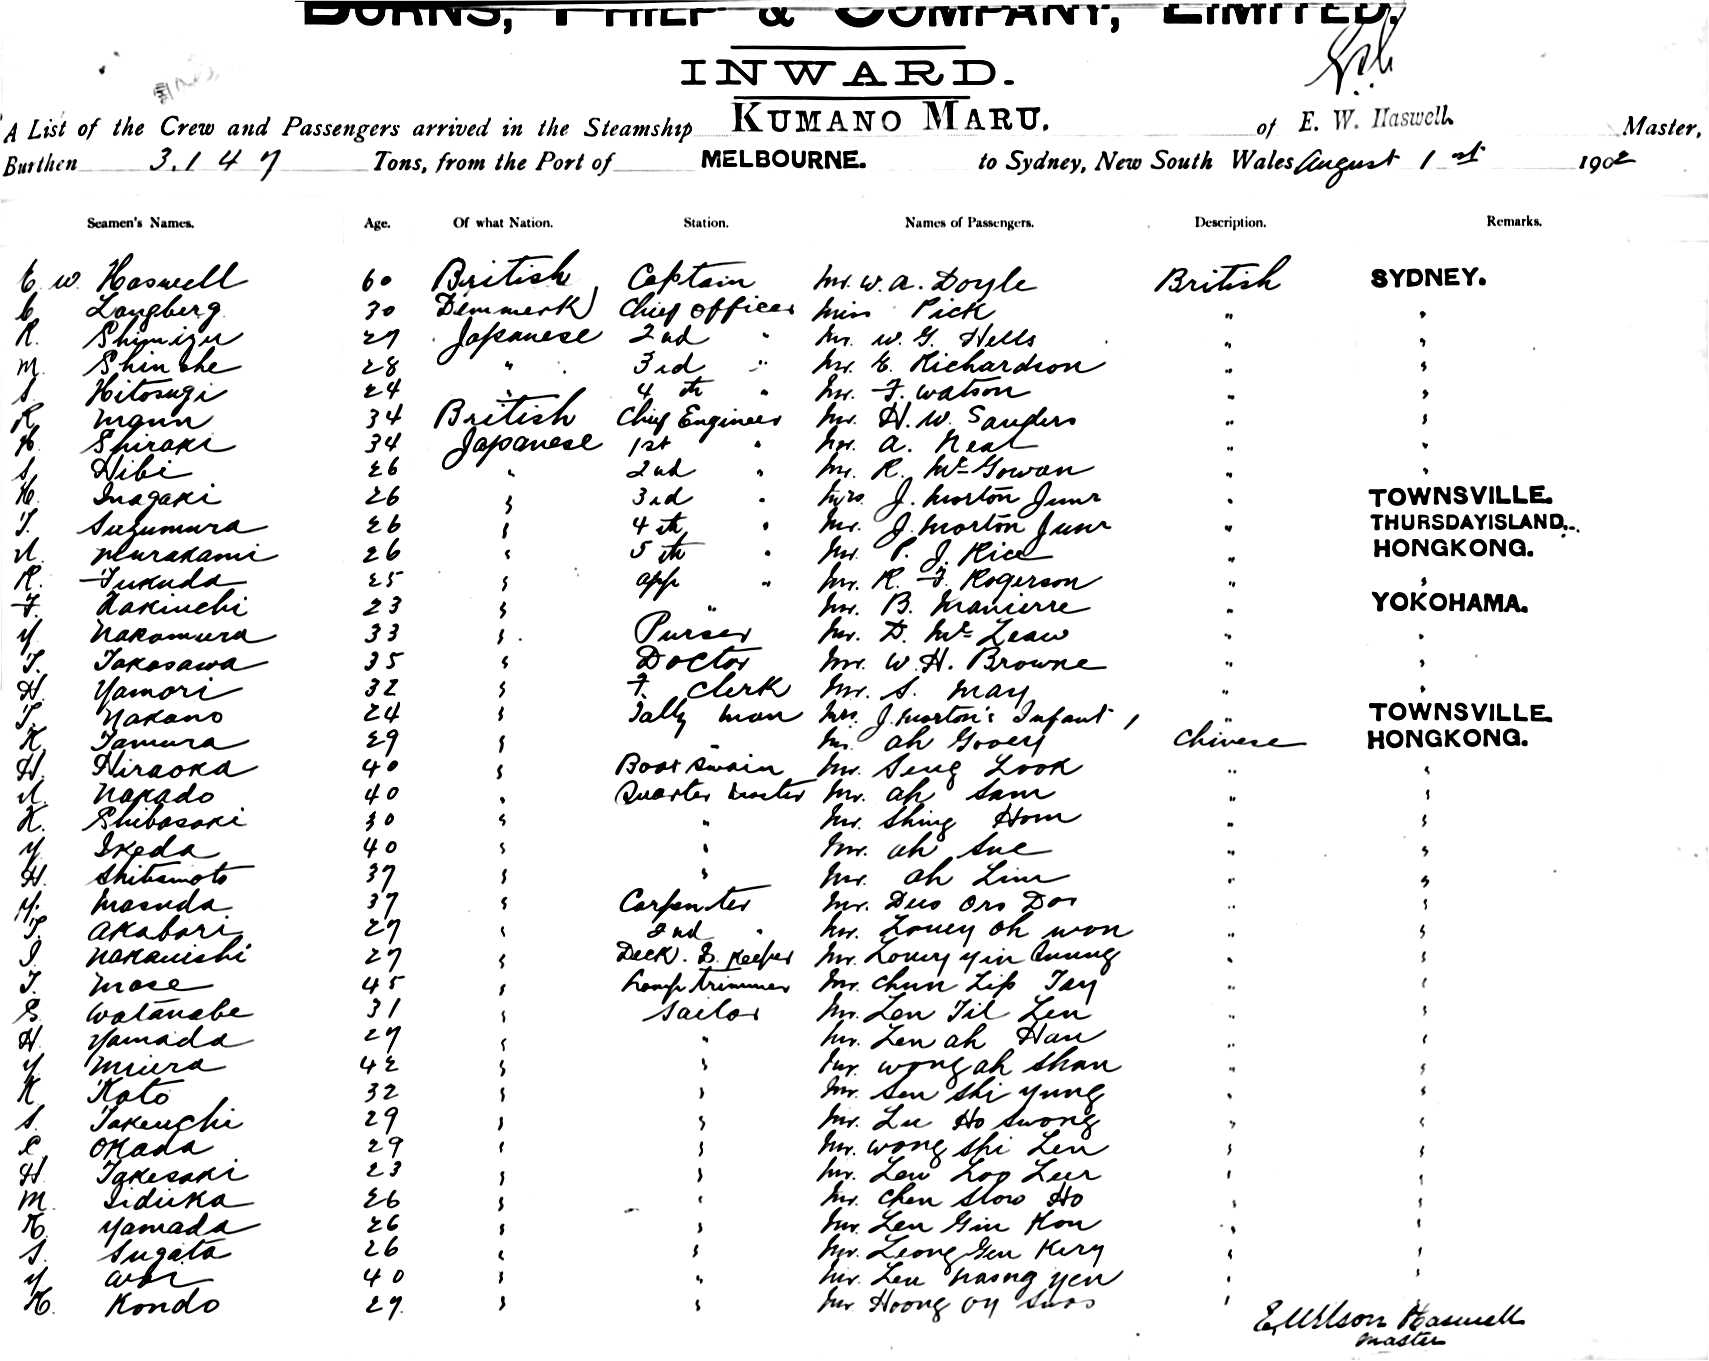 BURNS, PHILP & COMPANY, LIMITED.
INWARD.
A List of the Crew and Passengers arrived in the Steamship KUMANO MARU. of E. W. Haswell Master,
Burthen 3.147 Tons, from the Port of MELBOURNE. to Sydney, New South Wales August 1st 1902
Seamen's Names. Age. Of what Nation. Station. Names of Passengers. Description. Remarks.
E. W. Haswell 60 British Captain Mr. W. A. Doyle British SYDNEY.
C Langberg 30 Denmark Chief Officer Miss Pick " "
R. Shimizu 27 Japanese 2nd " Mr. W. G. Hells " "
M. Shinohe 28 " 3rd " Mr. E. Richardson " "
S. Hitosugi 24 " 4th " Mr. F. Watson " "
R Mann 34 British Chief Engineer Mr. H. W. Sanders " "
K. Shiraki 34 Japanese 1st " Mr. A. Neal " "
S. Hibi 26 " 2nd " Mr. R. McGowan " "
K. Inagaki 26 " 3rd " Mrs. J. Morton Junr " TOWNSVILLE.
T. Suzumura 26 " 4th " Mr. J. Morton Junr " THURSDAY ISLAND.
N. Murakami 26 " 5th " Mr. P. J. Rice " HONGKONG.
R. Fukuda 25 " app " Mr. R. F. Rogerson " "
F. Kakiuchi 23 " " Mr. B. Manierre " YOKOHAMA.
Y Nakamura 33 " Purser Mr. D. Mc Leaw " "
T. Takasawa 35 " Doctor Mr. W. H. Browne " "
H. Yamori 32 " F. Clerk Mr. S. May " "
T. Nakano 24 " Tally man Mrs. J. Morton's Infant " TOWNSVILLE.
K Tamura 29 " " Mr. Ah Govey Chinese HONGKONG.
H. Hiraoka 40 " Boatswain Mr. Seng Look " "
N. Nakado 40 " Quarter Master Mr. Ah Sam " "
K. Shibasaki 30 " " Mr. Shing Hom " "
Y Ikeda 40 " " Mr. Ah Sue " "
H. Shibamoto 37 " " Mr. Ah Lim " "
Y. Masuda 37 " Carpenter Mr. Duo Oro Dos " "
T. Akabori 27 " 2nd " Mr. Louey Oh Won " "
I. Nakanishi 27 " Deck. S. Keeper Mr. Louey Yin Quung " "
T. Mase 45 " Lamp trimmer Mr. Chun Lip Tay " "
S. Watanabe 31 " Sailor Mr. Len Til Len " "
H. Yamada 27 " " Mr. Len Ah Han " "
Y Miura 42 " " Mr. Wong Ah Shan " "
K Kato 32 " " Mr. Sen Shi Yung " "
S. Takeuchi 29 " " Mr. Lu Ho Swong " "
C Okada 29 " " Mr. Wong Shi Len " "
H Takesaki 23 " " Mr. Lew Lop Leer " "
M. Iiduka 26 " " Mr. Chen Slow Ho " "
K. Yamada 26 " " Mr. Len Gin Kon " "
S. Sugata 26 " " Mr. Leong Gen Kery " "
Y 40 " " Mr. Len Nasng Yen " "
K. Kondo 27. " " Mr Hoong Oy "
E. Wilson Haswell
Master